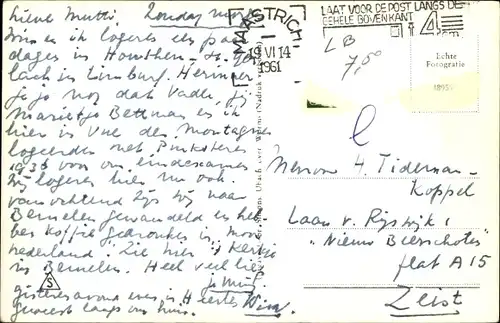 Lieve Mutti, Zondag
MAASTRICHT
19 VI 14
1961
LAAT VOOR DE POST LANGS DE
GEHELE BOVENKANT
4 cm
LB
7,50
Echte
Fotografie
en ik logeren een paar
dagen in Houthem - St. Ger
lach in Limburg. Herinner
je je nog dat Vader, jij
Marietje Bettman en ik
hier in Vue des Montagnes
logeerden met Pinksteren
1936 voor ons eindexamen
Wij logeren hier nu ook.
Vanochtend zijn wij naar
Bemelen gewandeld en heb
ben koffie gedronken in "Mooi
Nederland". Zie hier 't kerkje
in Bemelen. Heel veel liefs
je
gisteravond even in Heerlen
geweest langs ons huis. Wim
S
Mevrouw H. Tideman-
Koppel
Laan v. Rijswijk 1
"Nieuw Beerschoten"
flat A 15
Zeist